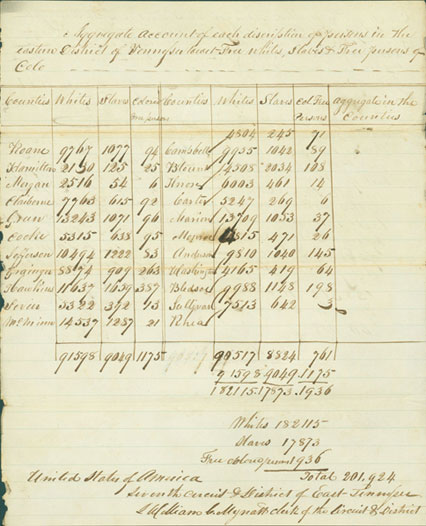 Aggregate Account of each discription of persons in the
eastern District of Tennessee to wit Free Whites, Slaves & Free persons of
Colo
Counties Whites Slaves Colored free persons Counties Whites Slaves Col Free Persons aggregate in the Counties
4804 245 71
Roane 9767 1077 94 Campbell 9935 1042 89
Hamilton 2130 125 25 Blount 4508 2034 108
Morgan 2516 54 6 Knox 6003 461 14
Claiborne 7763 615 92 Carter 5247 269 6
Green 13243 1071 96 Marion 13709 1053 37
Cocke 5315 638 95 Monroe 4815 471 26
Jefferson 10494 1222 83 Anderson 9810 1040 145
Grainger 8874 909 263 Washington 4165 419 64
Hawkins 11637 1659 387 Bledsoe 9988 1148 198
Sevier 5322 392 13 Sullivan 7513 642 3
McMinn 14537 1287 21 Rhea
91598 9049 1175 90517 8824 761
91598 9049 1175
182115 17873 1936
Whites 182115
Slaves 17873
Free colored persons 1936
Total 201,924
United States of America
Seventh Circuit & District of East Tennessee
I William C Mynatt clerk of the Circuit & District